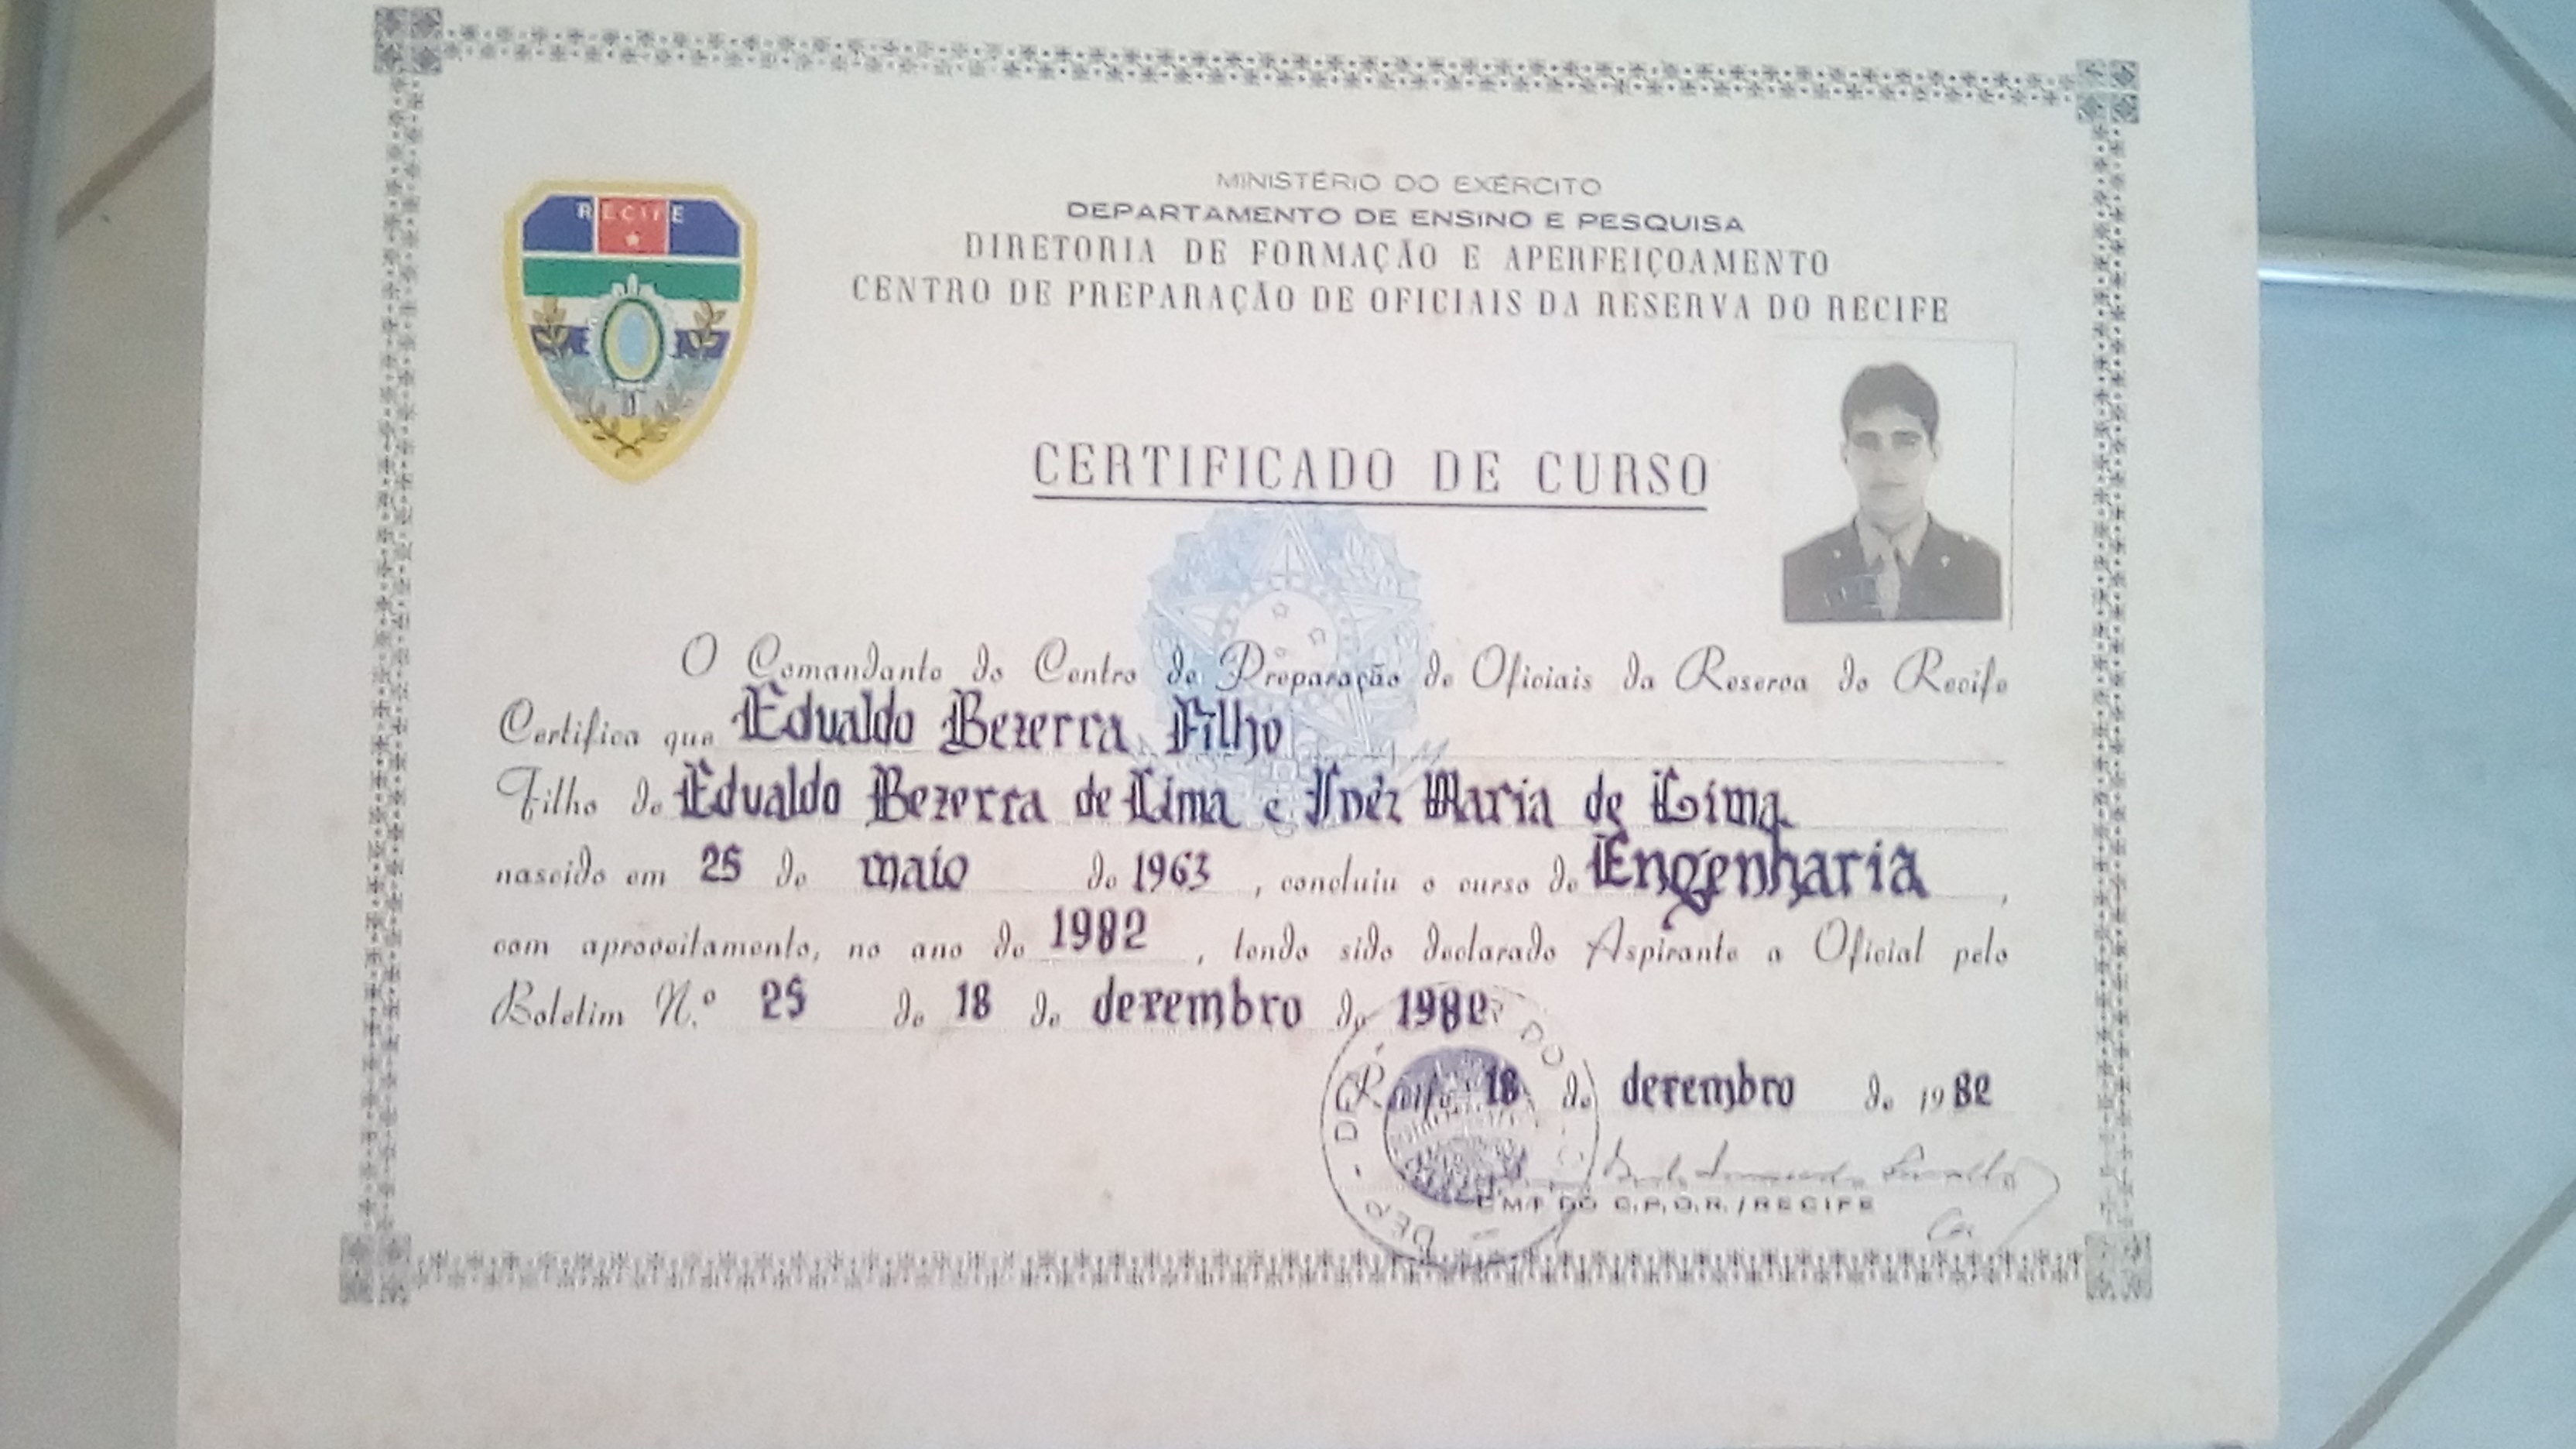 RECIFE
MINISTÉRIO DO EXÉRCITO
DEPARTAMENTO DE ENSINO E PESQUISA
DIRETORIA DE FORMAÇÃO E APERFEIÇOAMENTO
CENTRO DE PREPARAÇÃO DE OFICIAIS DA RESERVA DO RECIFE
CERTIFICADO DE CURSO
O Comandante do Centro de Preparação de Oficiais da Reserva do Recife
Certifica que Edualdo Bezerra Filho
Filho de Edualdo Bezerra de Lima e Inêz Maria de Lima
nascido em 25 de maio de 1963, concluiu o curso de Engenharia,
com aproveitamento, no ano de 1982, tendo sido declarado Aspirante a Oficial pelo
Boletim N.º 25 de 18 de dezembro de 1982
Recife 18 de dezembro de 1982
CMT DO C.P.O.R./RECIFE